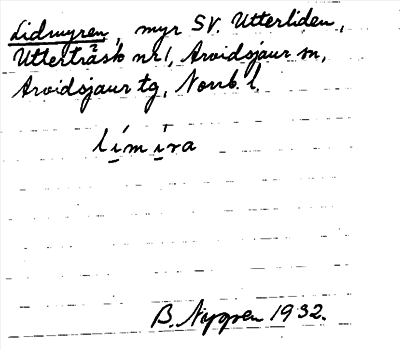 Lidmyren, myr SV. Utterliden,
Utterträsk nr 1, Arvidsjaur sn,
Arvidsjaur tg, Norrb. l.
límíra
B. Nygren 1932.